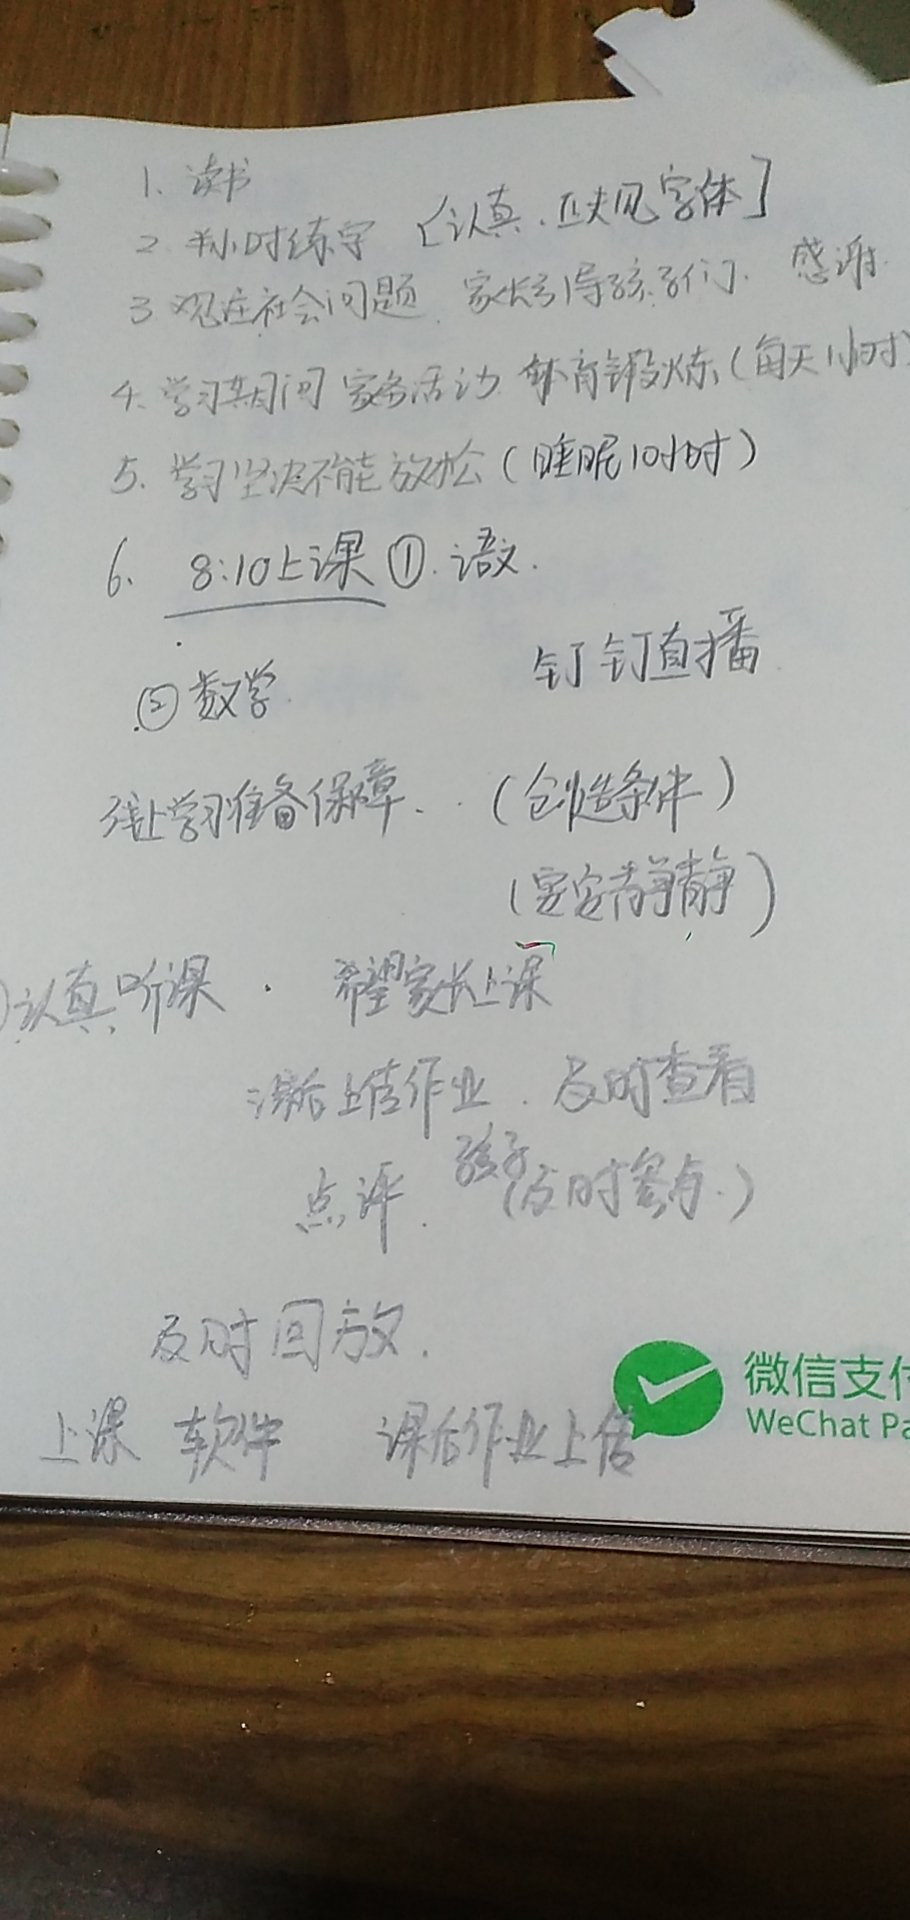 1. 读书
2. 半小时练字 [认真、正规字体]
3 观注社会问题. 家长引导孩子们. 感谢.
4. 学习期间 家务活动 体育锻炼(每天1小时)
5. 学习坚决不能放松(睡眠10小时)
6. 8:10上课 ① 语文.
② 数学 钉钉直播
线上学习准备保障. (创造条件)
(安安静静)
认真听课. 希望家长上课
课后上传作业. 及时查看
点评. 孩子(及时参与.)
及时回放.
上课 软件 课后作业上传
微信支付
WeChat Pa